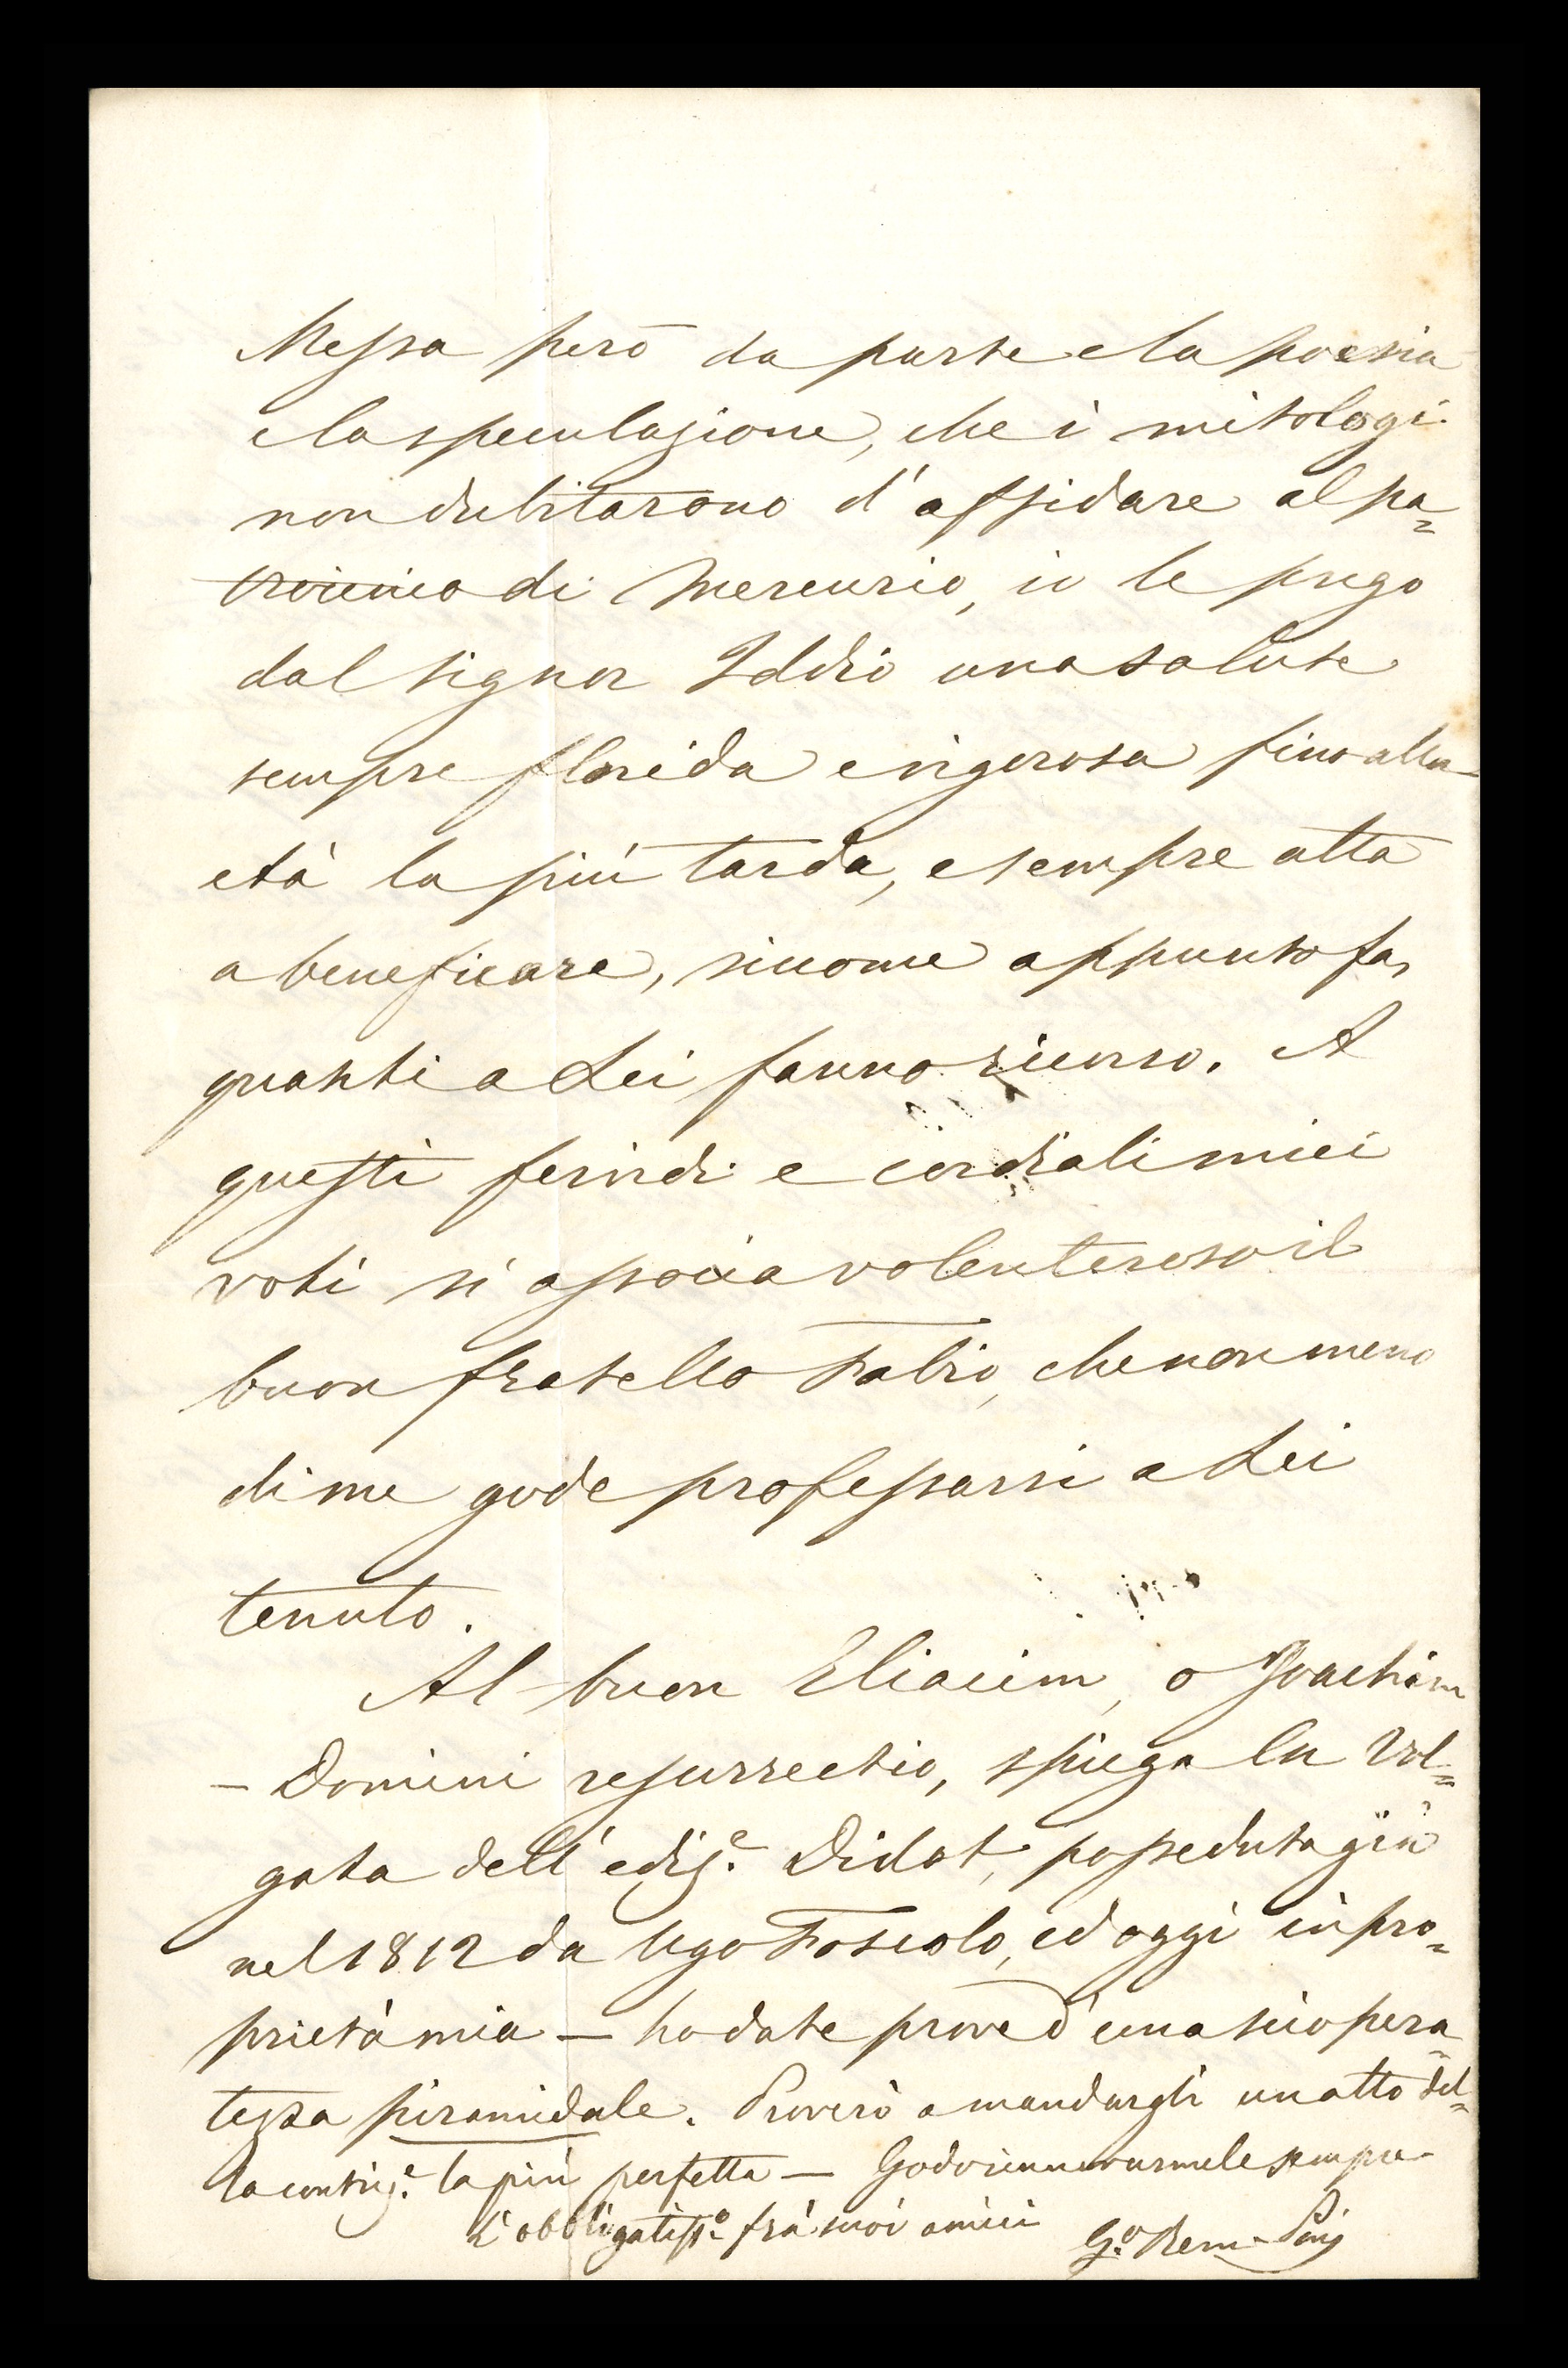 Messa però da parte e la poesia
e la speculazione, che i mitologi
non dubitarono d'affidare al pa=
trocinio di Mercurio, io le prego
dal signor Iddio una salute
sempre florida e vigorosa fino alla
età la più tarda, e sempre atta
a beneficare, siccome appunto fa,
quanti a Lei fanno ricorso. A
questi fervidi e cordiali miei
voti si associa volenteroso il
buon fratello Fabio, che non meno
di me gode professarsi a Lei
tenuto.
Al buon Eliacim, o Joachim
– Domini resurrectio, spiega la Vol=
gata dell'ediz.e Didot, posseduta già
nel 1812 da Ugo Foscolo, ed oggi in pro=
prietà mia – ho date prove d'una
piramidale. Proverò a mandargli un atto del=
la contriz.e la più perfetta – Godo sempre
L'obbligatiss.o frà suoi amici
G.o Bern